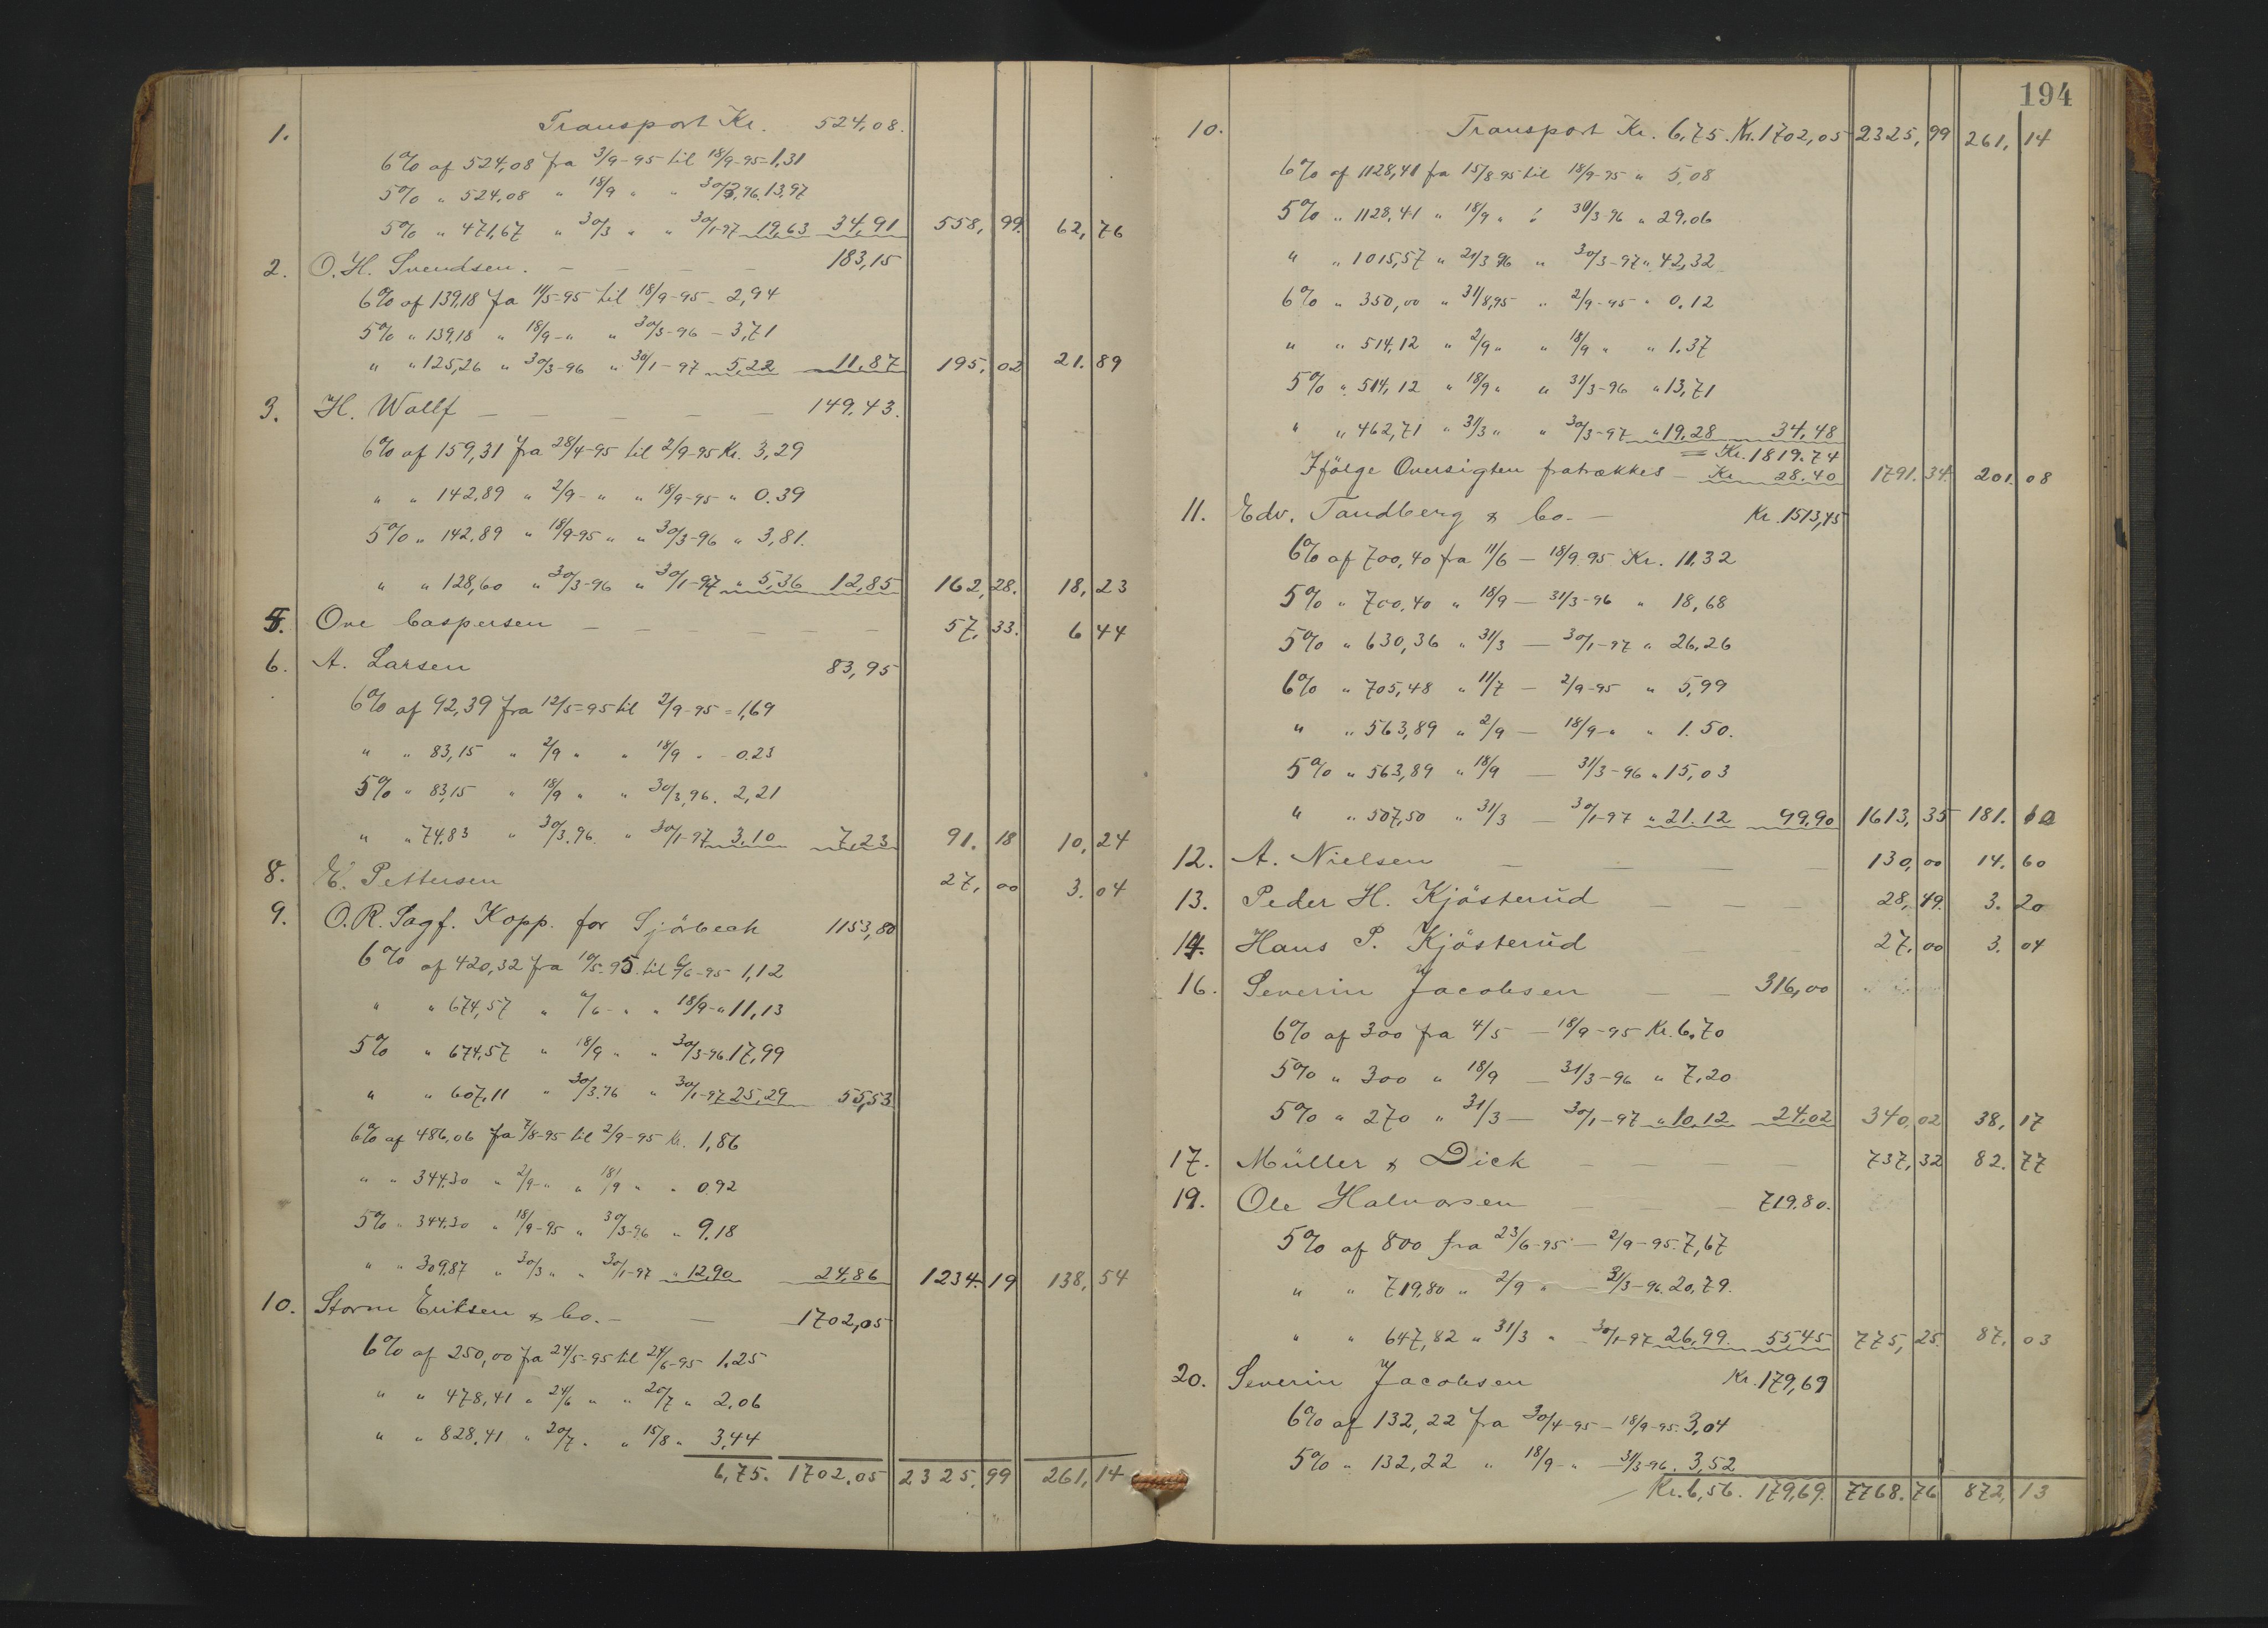 1. Transport Kr. 524,08.
6% af 524,08 fra 3/9-95 til 18/9-95-1,31
5% " 524,08 " 18/9 " " 30/3,96. 13,97
5% " 471,67 " 30/3 " " 30/1-97 19,63 34,91 558,99. 62,76
2. O. H. Svendsen. – – – – 183,15
6% af 139,18 fra 11/5-95 til 18/9-95 - 2,94
5% " 139,18 " 18/9-" " 30/3-96 - 3,71
" " 125,26 " 30/3-96 " 30/1-97 5,22 11,87 195,02 21.89
3. H. Wollf – – – – – 149,43.
6% af 159,31 fra 28/4-95 til 2/9-95 Kr. 3,29
" " 142,89 " 2/9-" " 18/9-95 " 0.39
5% " 142,89 " 18/9-95 " " 30/3-96 " 3,81.
" " 128,60 " 30/3-96 " 30/1-97 " 5,36 12,85 162,28. 18,23
5. Ove Caspersen – – – – – – 57,33. 6 44
6. A. Larsen 83,95
6% af 92,39 fra 12/5-95 til 2/9-95 = 1,69
" " 83,15 " 2/9 " " 18/9 " - 0.23
5% " 83,15 " 18/9 " " 30/3,96. 2,21
" " 74,83 " 30/3.96. " 30/1-97 3,10 7,23 91.18 10,24
8. E. Pettersen 27,00 3.04
9. O. R. Sagf. Kopp. for Sjörbeck 1153,80
6% af 420,32 fra 10/5-95. til 6/6-95 - 1,12
" " 674,57 " 6/6-" " 18/9-" 11,13
5% " 674,57 " 18/9 " " 30/3-96. 17,99
" " 607,11 " 30/3.96 " 30/1-97 25,29 55,53
6% af 486,06 fra 7/8-95 til 2/9-95 Kr. 1,86
" " 344.30 " 2/9-" " 18/9 " " 0.92
5% " 344.30 " 18/9-95 " 30/3-96 " 9.18
" " 309,87 " 30/3 " " 30/1-97 " 12,90 24,86 1234.19 138,54
10. Storm Eriksen & Co. – – 1702,05
6% af 250,00 fra 24/5-95 til 24/6-95 1.25
" " 478,41 " 24/6 " " 20/7 " 2.06
" " 828.41 " 20/7 " " 15/8 " 3,44
6,75. 1702.05 2325.99 261,14
194
10. Transport Kr. 6,75. Kr. 1702,05 2325,99 261,14
6% af 1128,41 fra 15/8 95 til 18/9-95 " 5,08
5% " 1128,41 " 18/9 " " 30/3-96 " 29,06
" " 1015,57 " 21/3 96 " 30/3-97 " 42,32
6% " 350,00 " 31/8,95 " 2/9-95 " 0.12
" " 514,12 " 2/9 " " 18/9 " " 1.37
5% " 514,12 " 18/9 " " 31/3-96 " 13,71
" " 462,71 " 31/3 " " 30/3-97 " 19,28 34,48
= Kr. 1819.74
Ifölge Oversigten fratrækkes – Kr 28.40 1791.34. 201.08
11. Edv. Tandberg & Co. – Kr. 1513,45
6% af 700,40 fra 11/6 – 18/9.95 Kr. 11.32
5% " 700,40 " 18/9 – 31/3-96 " 18,68
5% " 630,36 " 31/3 – 30/1-97 " 26,26
6% " 705,48 " 11/7 – 2/9-95 " 5,99
" " 563,89 " 2/9 – 18/9-" " 1.50.
5% " 563,89 " 18/9 – 31/3-96 " 15,03
" " 507,50 " 31/3 – 30/1-97 " 21.12 99,90 1613,35 181.
12. A. Nielsen – – – – 130,00 14.60
13. Peder H. Kjösterud – – – 28,49. 3.20
14. Hans P. Kjösterud – – 27,00 3.04
16. Severin Jacobsen – – 316,00
6% af 300 fra 4/5 – 18/9-95 Kr. 6.70
5% " 300 " 18/9 – 31/3-96 " 7,20
5% " 270 " 31/3 – 30/1-97 " 10,12 24,02 340,02 38,17
17. Müller & Dick – – – – 737,32 82.77
19. Ole Halvorsen – – – 719.80.
5% af 800 fra 23/6-95 – 2/9-95. 7,67
" " 719,80 " 2/9 " – 31/3-96. 20,79.
" " 647,82 " 31/3 " – 30/1-97 26,99. 55 45 775,25. 87,03
20. Severin Jacobsen Kr. 179,69
6% af 132,22 fra 30/4-95 – 18/9-95. 3,04
5% " 132,22 " 18/9-" – 31/3-96. 3,52
Kr. 6,56. 179,69. 7768.76 872,13